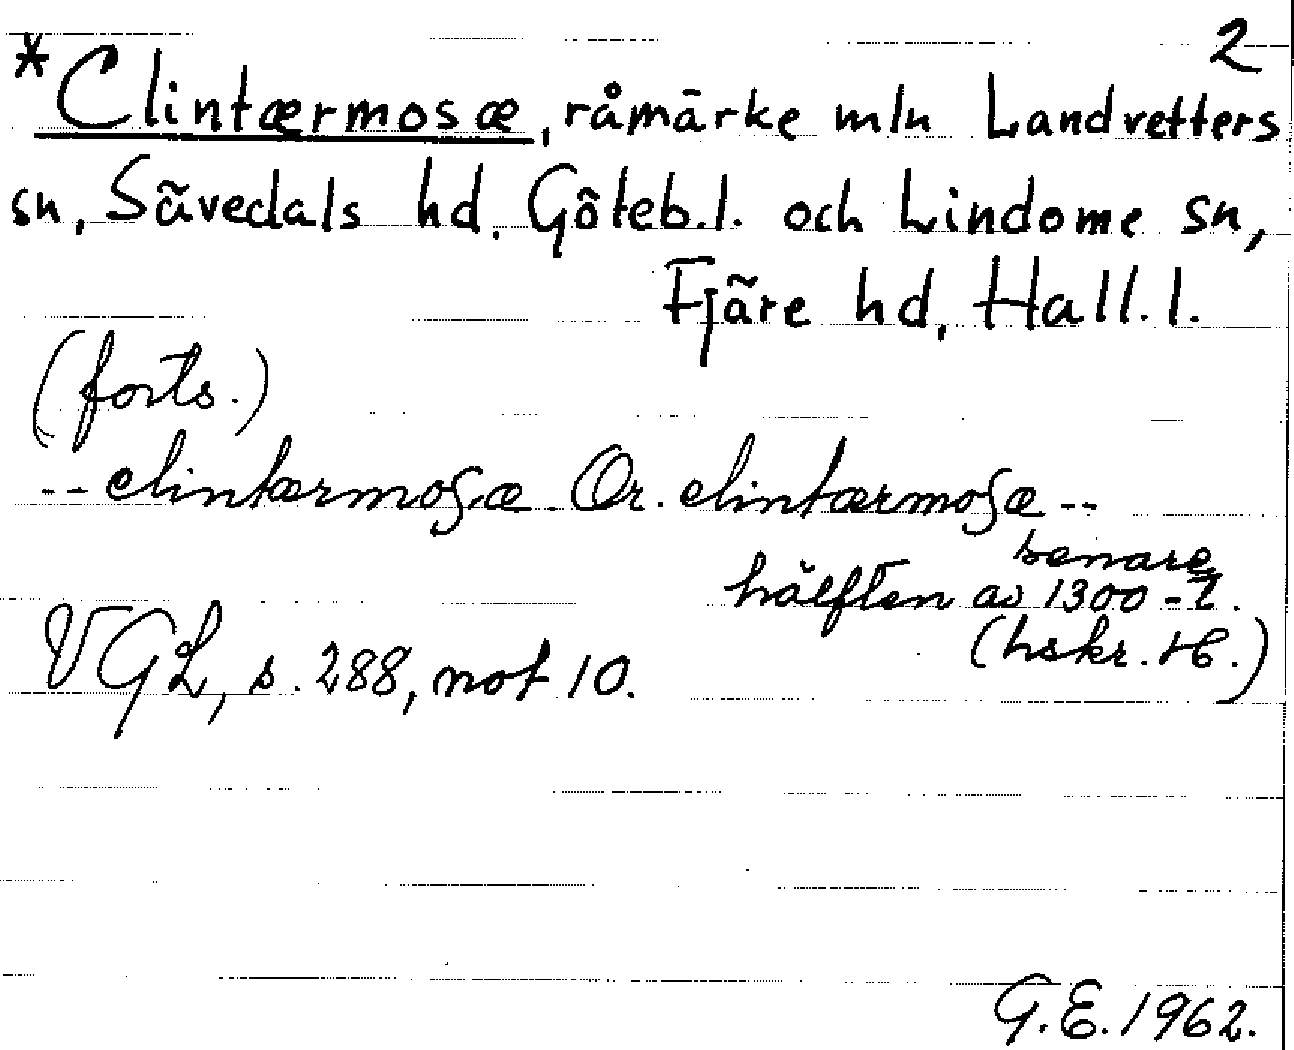 2
*Clintærmosæ, råmärke mln Landvetters
sn, Sävedals hd. Göteb.l. och Lindome sn,
Fjäre hd, Hall.l.
(forts.)
-- clintærmosæ Or. clintærmosæ --
senare
hälften av 1300-t.
(hskr. H.)
VGL, s. 288, not 10.
G.E. 1962.